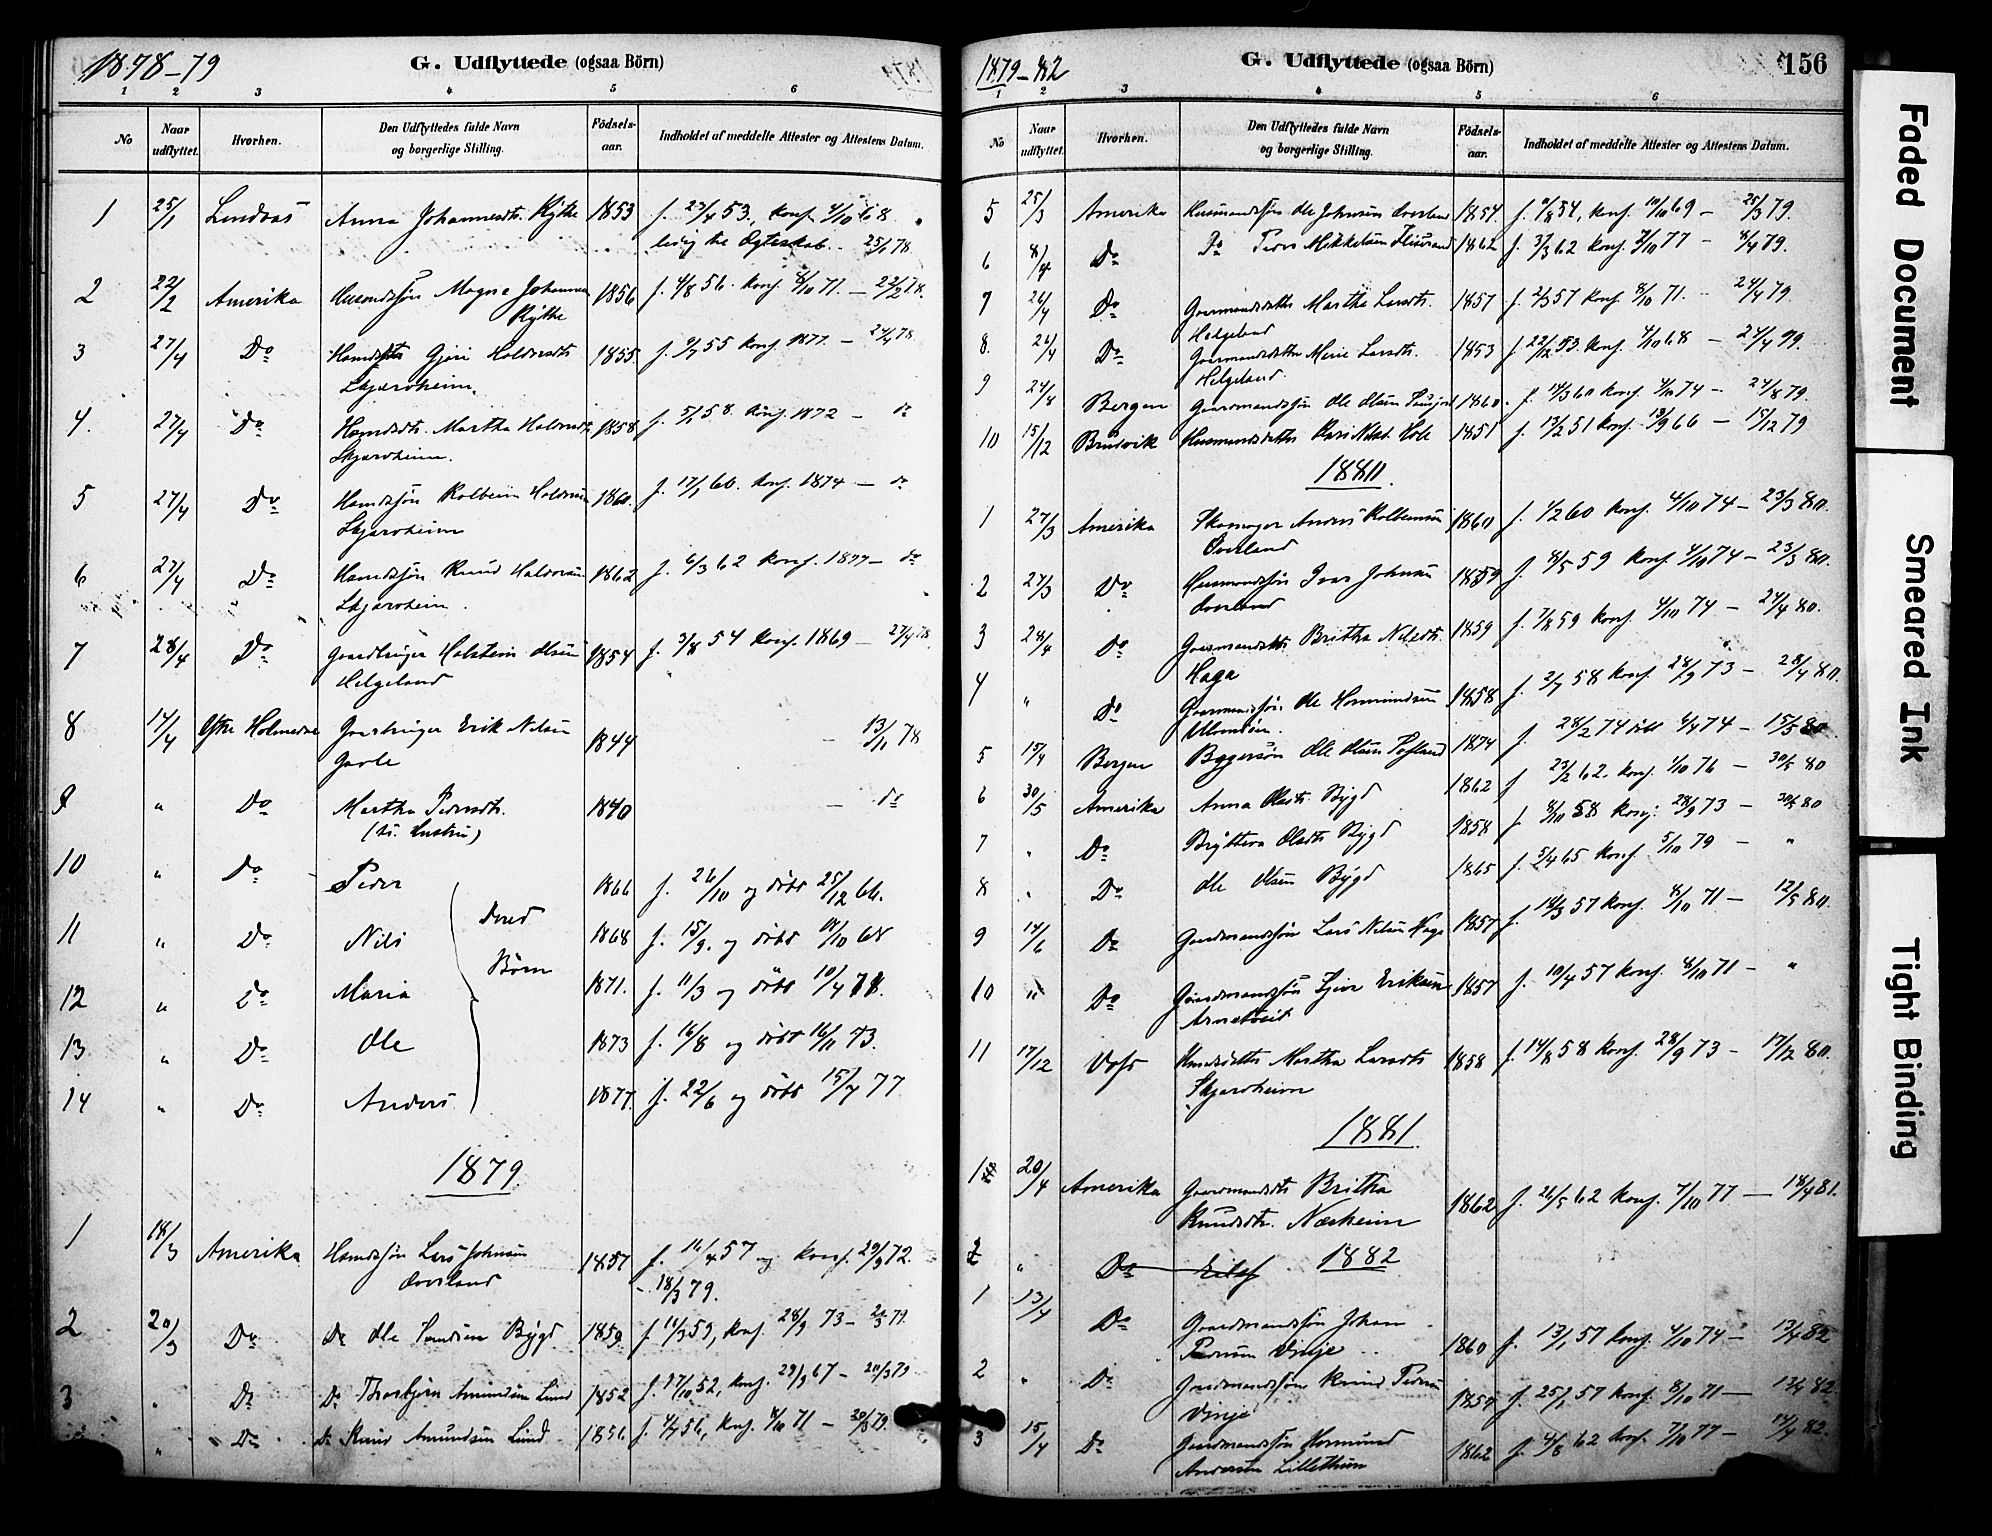 1878-79
G. Udflyttede (ogsaa Börn)
1 2 3 4 5 6
No
Naar udflyttet.
Hvorhen.
Den Udflyttedes fulde Navn og borgerlige Stilling.
Födsels-aar.
Indholdet af meddelte Attester og Attestens Datum.
1 25/1 Anna Johannesdtr. 1853 f. 23/4 53, konf. 4/10 68
ledig til Egteskab. - 25/1 78.
2 22/2 Amerika Magne 1856 f. 4/8 56. konf. 8/10 71. - 22/2 78.
3 27/4 Do 1855. konf. 1877. - 27/4 78
Skjervheim.
4. 27/4 Do Martha 1858 konf. 1872 - do
Skjervheim.
5 27/4 Do Kolbein 1860. f. 17/1 60. konf. 1874 - do
Skjervheim
6 27/4 Do Knud 1862 f. 6/3 62 konf. 1877 - do
Skjervheim.
7 28/4 Do Olsen 1854 f. 3/8 54 konf. 1869 - 27/4 78
Helgeland
8 17/4 Erik Nelsen 1844 - 13/11 78
9 " Do Martha Pedersdtr. 1840 - do
10 " Do Peder 1866 f. 26/10 og döbt 25/12 66.
11 " Do Nils 1868 f. 15/9. og döbt 18/10 68
Börn
12 " Do Maria 1871. f. 11/3 og döbt 10/4 71.
13 " Do Ole 1873 f. 16/8 og döbt 16/11 73.
14 " Do Anders 1877. f. 22/6 og döbt 15/7 77
1879
1 18/3 Amerika Lars Johnsen 1857 f. 11/4 57 og konf. 29/9 72.
Överland - 18/3 79.
2 20/3 Do Do Ole Bygd 1859. f. 11/3 59, konf. 28/9 73 - 20/3 79.
3 " Do Do Thorbjörn Amundsen Lund 1852 f. 27/10 52, konf. 29/9 67 - 20/3 79
" Do Do Knud Amundsen Lund 1856 f. 4/7 56, konf. 8/10 71 - 20/3 79.
1879-82
G. Udflyttede (ogsaa Börn)
156
1 2 3 4 5 6
No
Naar udflyttet.
Hvorhen.
Den Udflyttedes fulde Navn og borgerlige Stilling.
Födsels-aar.
Indholdet af meddelte Attester og Attestens Datum.
5 25/3 Amerika Husmandssön Ole Johnsen Överland 1854. f. 9/8 54, konf. 10/10 69 - 25/3 79.
6 8/4 Do Do Peder Mikkelsen 1862 f. 3/3 62 konf. 7/10 77 - 8/4 79.
7 26/4 Do Gaardmandsdatter Martha Larsdtr. 1857 f. 2/3 57 konf. 8/10 71. - 24/4 79
Helgeland
8. 26/4 Do Gaardmandsdatter Marie Larsdtr. 1853 f. 22/12 53. konf. 4/10 68 - 24/4 79.
Helgeland.
9 24/8 Bergen Gaardmandssön Ole Olsen 1860. f. 14/3 60 konf. 4/10 74 - 24/8 79.
10 15/12 Bruvik Husmandsdatter 1851 f. 13/2 51 konf. 13/9 66 - 15/12 79
1880.
1 27/3 Amerika Skomager Anders Kolbeinsen 1860 f. 1/2 60 konf. 4/10 74 - 23/3 80.
Överland
2 27/3 Do Husmandssön Ivar Johnsen 1859 f. 8/5 59 konf. 4/10 74 - 23/3 80.
Överland
3 28/4 Do Gaardmandsdtr Britha Nelsdtr. 1859 f. 7/8 59 konf. 4/10 74 - 24/4 80.
Haga
4 " Do Gaardmandssön Ole 1858 f. 2/7 58 konf. 28/9 73 - 28/4 80.
5 15/4 Bergen Ole Olsen 1874 f. 28/2 74 döbt 6/4 74 - 15/5 80
6 30/5 Amerika Anna Olsdtr. Bygd 1862 f. 23/2 62. konf. 1/10 76 - 30/5 80
7 " Do Olsdtr Bygd 1858 f. 8/10 58 konf. 28/9 73 - 30/5 80
8 " Do Ole Olsen Bygd 1865 f. 5/4 65 konf. 5/10 79 - "
9 14/6 Do Gaardmandssön Lars Nelsen Haga 1857 f. 14/3 57 konf. 8/10 71 - 12/5 80.
10 " Do Gaardmandssön Eriksen 1857 f. 10/4 57 konf. 8/10 71 - "
Arnetveit
11 17/12 Voss Martha Larsdtr 1858 f. 14/8 58 konf. 28/9 73 - 17/12 80.
Skjervheim
1881.
1 20/4 Amerika Gaardmandsdtr Britha 1862 f. 26/5 62 konf. 7/10 77 - 18/4 81.
Knudsdtr. Næsheim
2 " Do Eilef
1882
1 13/4 Do Gaardmandssön Johan
Pedersen Vinje 1860 f. 13/1 57 konf. 4/10 74 - 13/4 82
2 " Do Gaardmandssön Knud Pedersen
Vinje 1857 f. 25/1 57 konf. 8/10 71 - 13/4 82.
3 15/4 Do Gaardmandssön Hormund 1862 f. 4/8 62 konf. 7/10 77 - 14/4 82.
Andersen Lillethun
Faded Document
Smeared Ink
Tight Binding